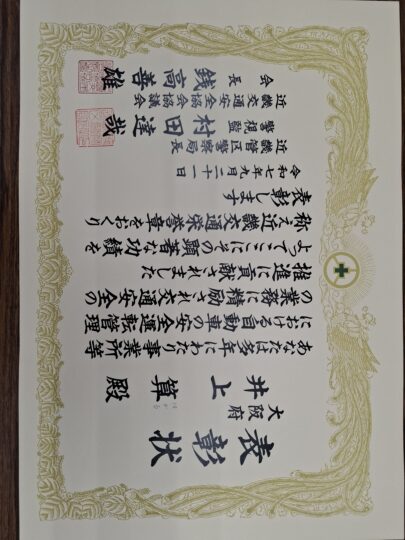 表彰状
大阪府
井上 算 殿
あなたは多年にわたり事業所等
における自動車の安全運転管理
の業務に精励され交通安全の
推進に貢献されました
よってここにその顕著な功績を
称え近畿交通栄誉章をおくり
表彰します
令和七年九月二十一日
近畿管区警察局長
警視監 村田達哉
近畿交通安全協会協議会
会長 銭高善雄